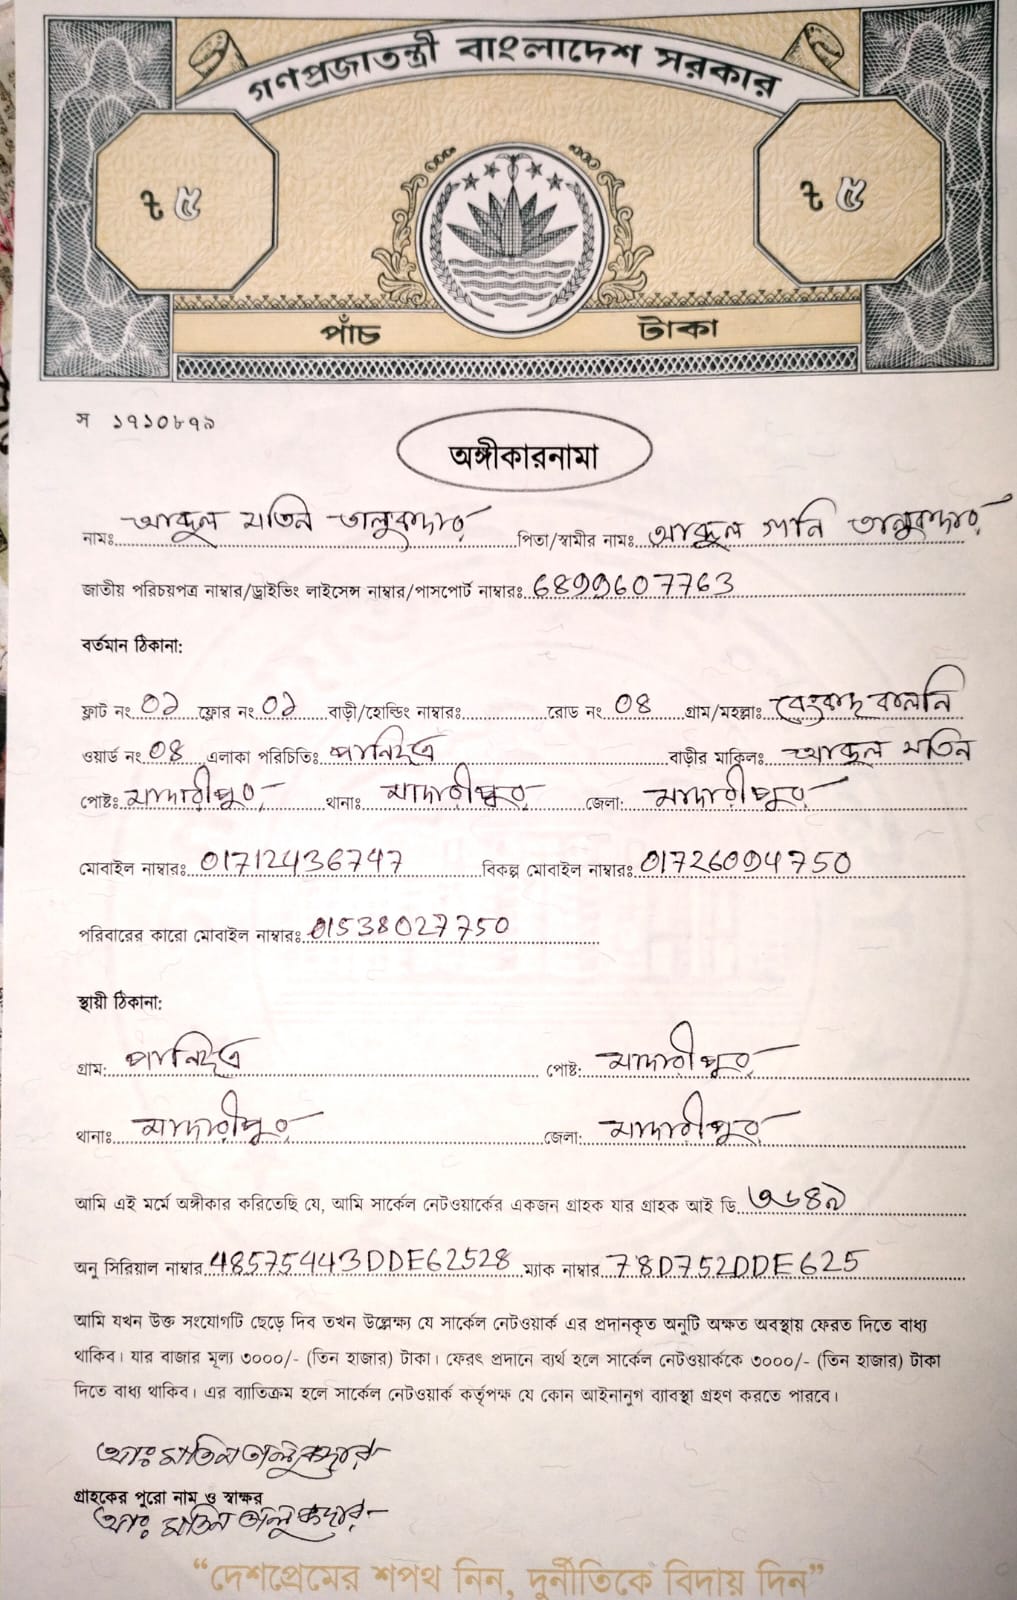 গণপ্রজাতন্ত্রী বাংলাদেশ সরকার
৳ ৫ ৳ ৫
পাঁচ টাকা
স ১৭১০৮৭৯
অঙ্গীকারনামা
নামঃ আব্দুল মতিন তালুকদার পিতা/স্বামীর নামঃ আব্দুল গনি তালুকদার
জাতীয় পরিচয়পত্র নাম্বার/ড্রাইভিং লাইসেন্স নাম্বার/পাসপোর্ট নাম্বারঃ 6899607763
বর্তমান ঠিকানা:
ফ্লাট নং 01 ফ্লোর নং 01 বাড়ী/হোল্ডিং নাম্বারঃ রোড নং 04 গ্রাম/মহল্লাঃ
ওয়ার্ড নং 04 এলাকা পরিচিতিঃ বাড়ীর মালিকঃ আব্দুল মতিন
পোষ্টঃ মাদারীপুর থানাঃ মাদারীপুর জেলা: মাদারীপুর
মোবাইল নাম্বারঃ 01712436747 বিকল্প মোবাইল নাম্বারঃ 01726094750
পরিবারের কারো মোবাইল নাম্বারঃ 01538027750
স্থায়ী ঠিকানা:
গ্রাম: পোষ্ট: মাদারীপুর
থানাঃ মাদারীপুর জেলা: মাদারীপুর
আমি এই মর্মে অঙ্গীকার করিতেছি যে, আমি সার্কেল নেটওয়ার্কের একজন গ্রাহক যার গ্রাহক আই ডি ৩৬৪৯
অনু সিরিয়াল নাম্বার 48575443DDE62528 ম্যাক নাম্বার 78D752DDE625
আমি যখন উক্ত সংযোগটি ছেড়ে দিব তখন উল্লেক্ষ্য যে সার্কেল নেটওয়ার্ক এর প্রদানকৃত অনুটি অক্ষত অবস্থায় ফেরত দিতে বাধ্য
থাকিব। যার বাজার মূল্য ৩০০০/- (তিন হাজার) টাকা। ফেরৎ প্রদানে ব্যর্থ হলে সার্কেল নেটওয়ার্ককে ৩০০০/- (তিন হাজার) টাকা
দিতে বাধ্য থাকিব। এর ব্যাতিক্রম হলে সার্কেল নেটওয়ার্ক কর্তৃপক্ষ যে কোন আইনানুগ ব্যাবস্থা গ্রহণ করতে পারবে।
আঃ মতিন তালুকদার
গ্রাহকের পুরো নাম ও স্বাক্ষর
আঃ মতিন তালুকদার
“দেশপ্রেমের শপথ নিন, দুর্নীতিকে বিদায় দিন”